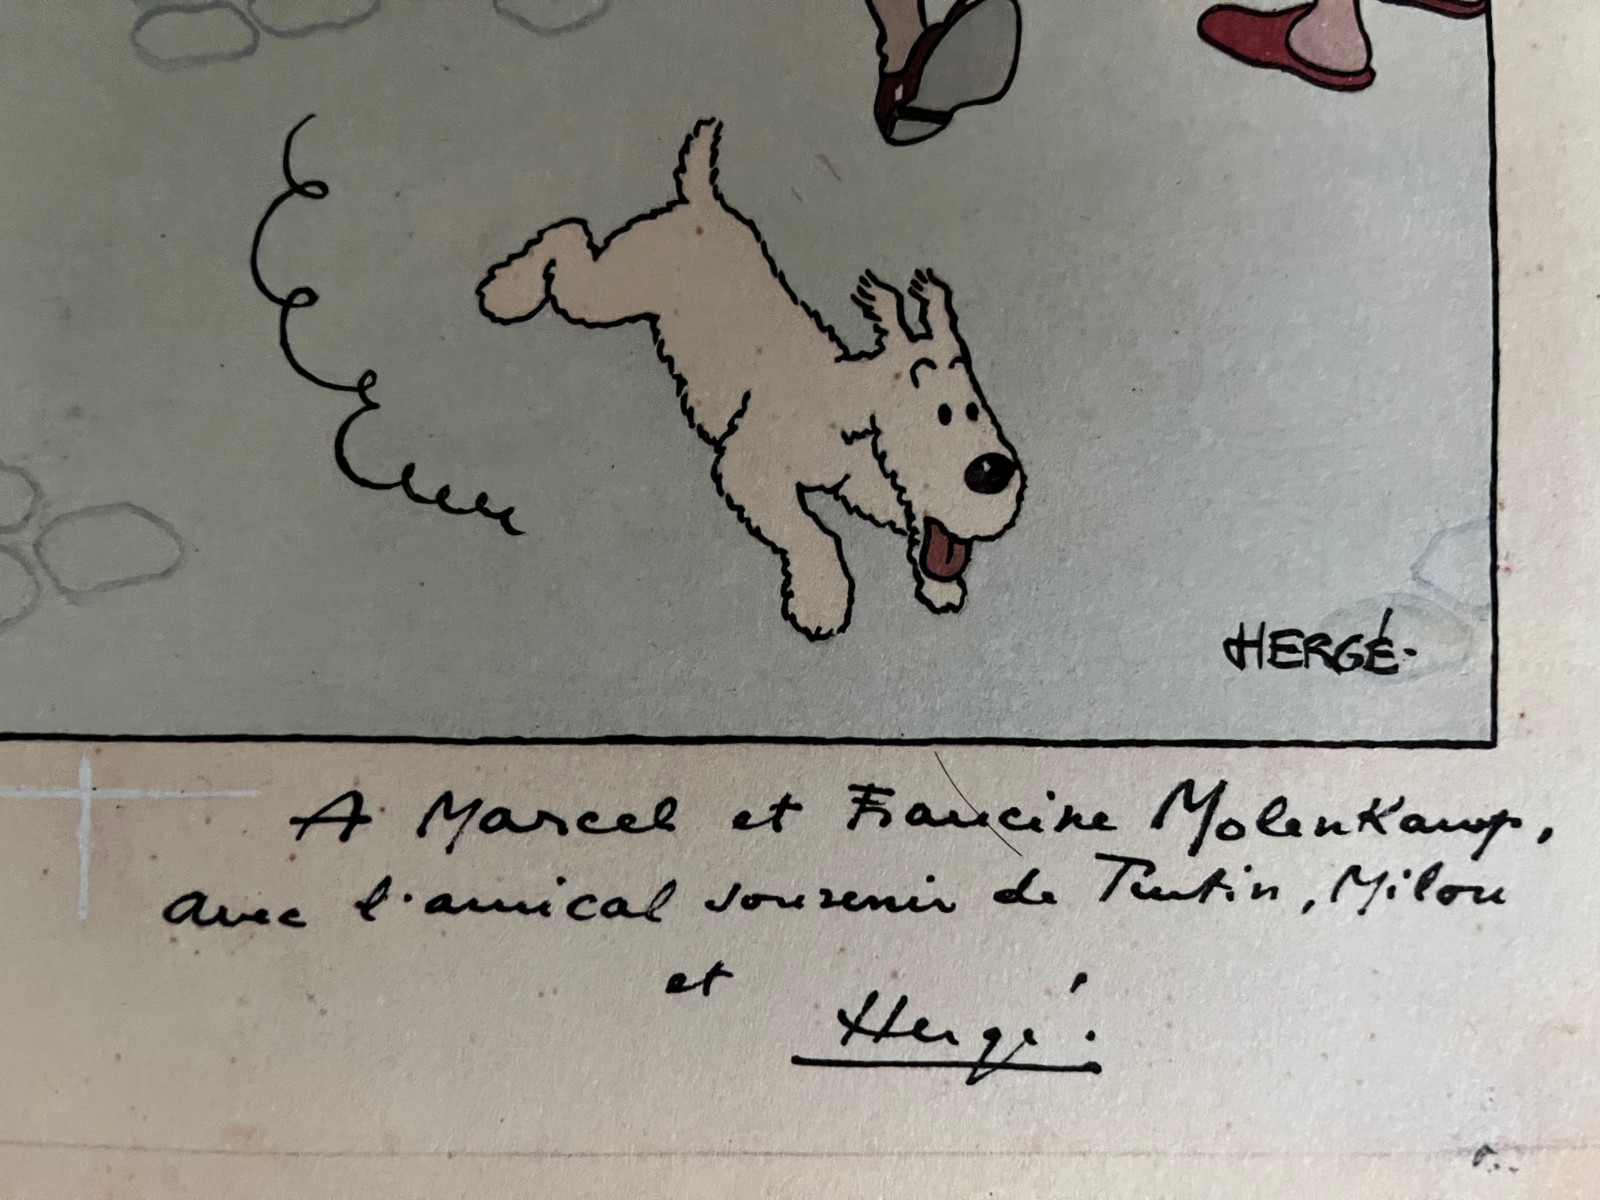 HERGÉ.
A Marcel et Francine Molenkamp,
avec l'amical souvenir de Tintin, Milou
et
Hergé.